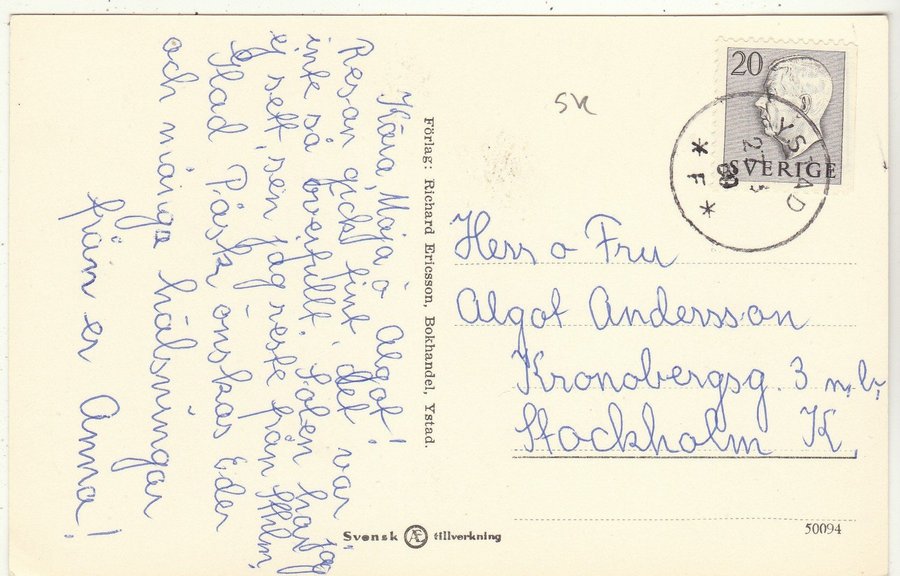 Kära Maja o Algot!
Resan gick fint, det var
inte så överfullt. Solen har jag
ej sett sen jag reste från Sthlm,
Glad Påsk önskas Eder
och många hälsningar
från er Anna!
Förlag: Richard Ericsson, Bokhandel, Ystad.
SK
20
SVERIGE
* F *
Herr o Fru
Algot Andersson
Kronobergsg. 3 n.b.
Stockholm K.
Svensk Æ tillverkning
50094